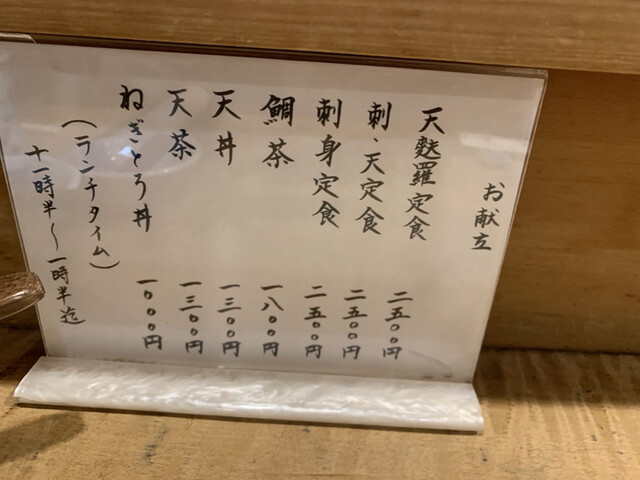 お献立
天麩羅定食 二五〇〇円
刺、天定食 二五〇〇円
刺身定食 二五〇〇円
鯛茶 一八〇〇円
天丼 一三〇〇円
天茶 一三〇〇円
ねぎとろ丼 一〇〇〇円
(ランチタイム)
十一時半〜一時半迄